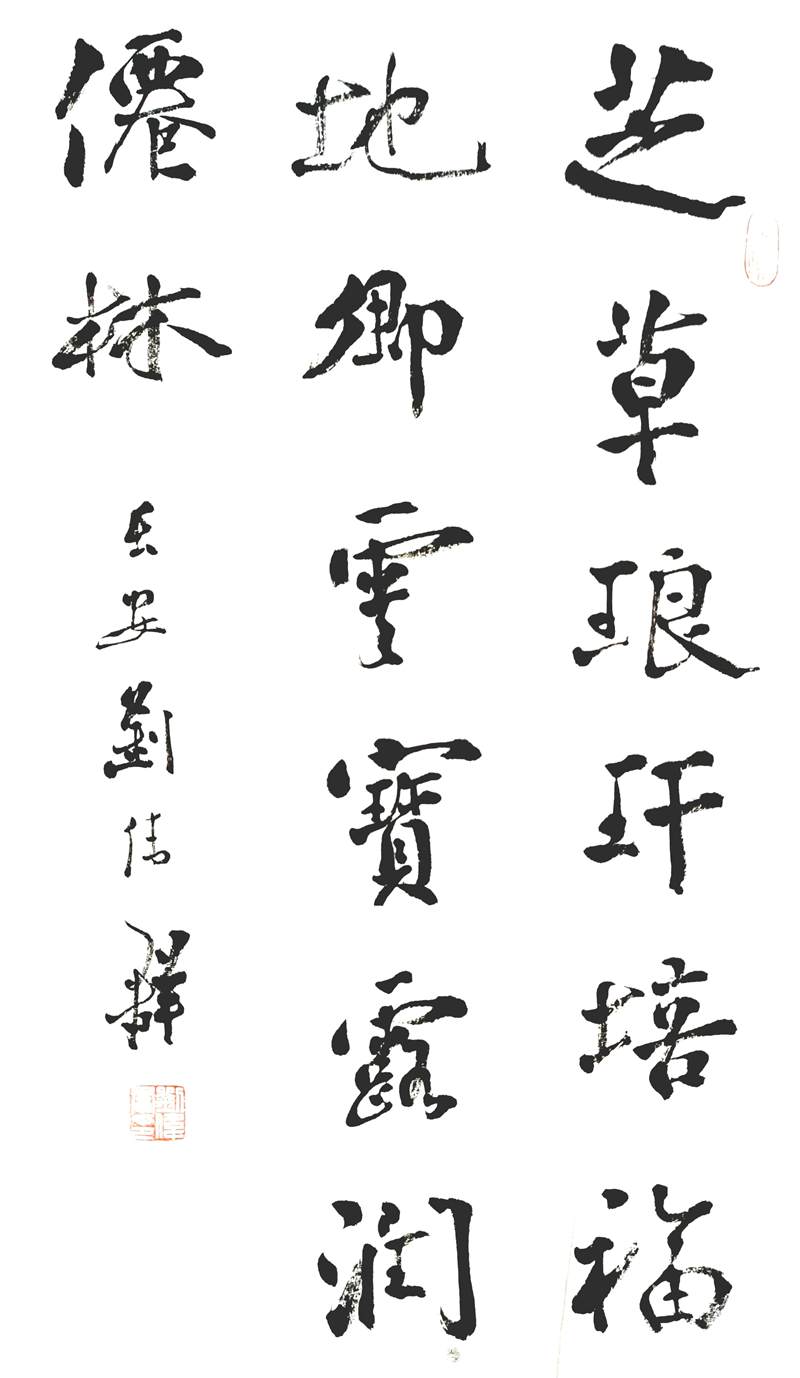 芝草琅玕培福
地卿雲寶露潤
僊林
長安劉偉群